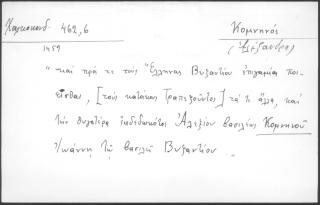 Χαλκοκονδ. 462,6
Κομνηνός
1459
(Ἀλέξανδρος)
"καὶ πρὸς τε τοὺς Ἕλληνας Βυζαντίου ἐπιγαμίας ποι-
εῖσθαι, [τοὺς κατοίκους Τραπεζοῦντος] τά τε ἄλλα, καὶ
τὴν θυγατέρα ἐκδεδωκότος Ἀλεξίου βασιλέως Κομνηνοῦ
Ἰωάννῃ τῷ βασιλεῖ Βυζαντίου